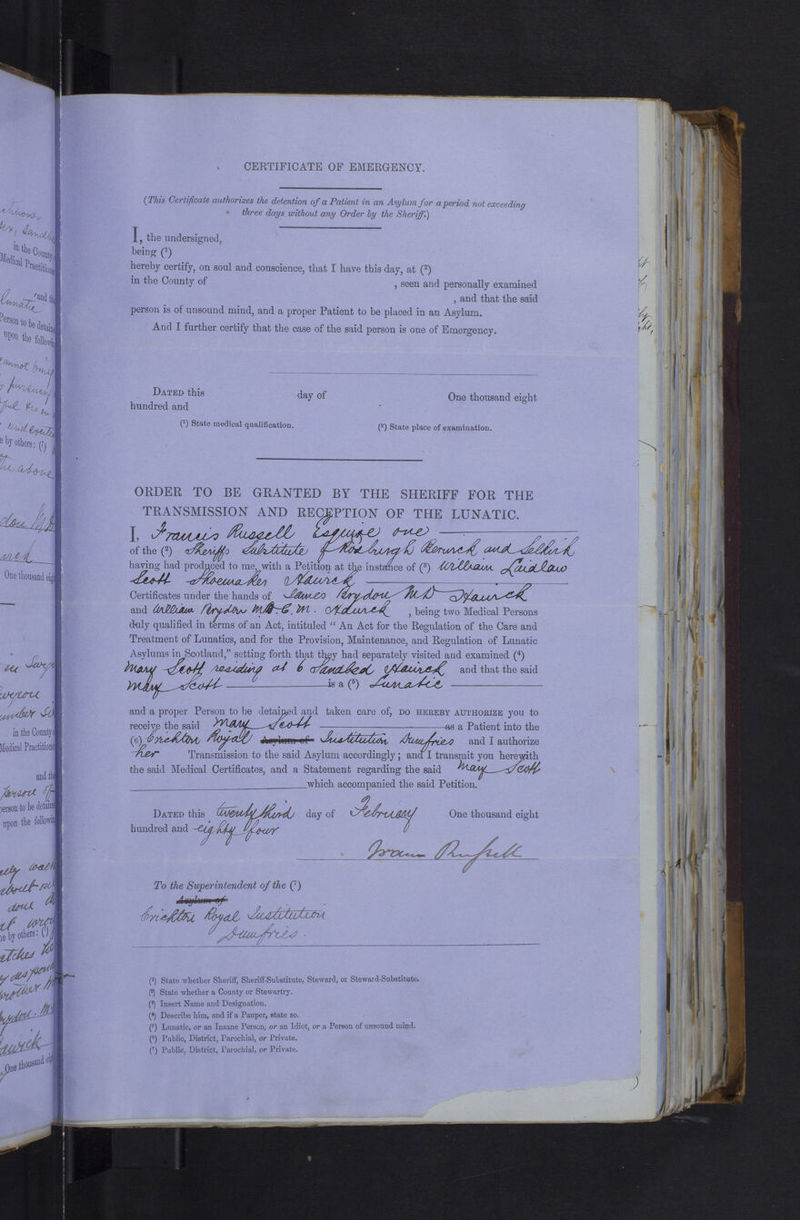 CERTIFICATE OF EMERGENCY.
(This Certificate authorizes the detention of a Patient in an Asylum for a period not exceeding
three days without any Order by the Sheriff.)
I, the undersigned,
being (¹)
hereby certify, on soul and conscience, that I have this day, at (²)
in the County of , seen and personally examined
, and that the said
person is of unsound mind, and a proper Patient to be placed in an Asylum.
And I further certify that the case of the said person is one of Emergency.
DATED this day of One thousand eight
hundred and
(¹) State medical qualification. (²) State place of examination.
ORDER TO BE GRANTED BY THE SHERIFF FOR THE
TRANSMISSION AND RECEPTION OF THE LUNATIC.
I, Francis Russell Esquire one
of the (²) Sheriffs Substitute of Roxburgh Berwick and Selkirk
having had produced to me, with a Petition at the instance of (³) William Laidlaw
Scott Shoemaker Hawick
Certificates under the hands of James Brydon M D Hawick
and William Brydon M B C. M. Hawick , being two Medical Persons
duly qualified in terms of an Act, intituled " An Act for the Regulation of the Care and
Treatment of Lunatics, and for the Provision, Maintenance, and Regulation of Lunatic
Asylums in Scotland," setting forth that they had separately visited and examined (⁴)
Mary Scott residing at 6 Sandbed Hawick and that the said
Mary Scott is a (⁵) Lunatic
and a proper Person to be detained and taken care of, DO HEREBY AUTHORIZE you to
receive the said Mary Scott as a Patient into the
(⁶) Crichton Royal Asylum of Institution Dumfries and I authorize
her Transmission to the said Asylum accordingly ; and I transmit you herewith
the said Medical Certificates, and a Statement regarding the said Mary Scott
which accompanied the said Petition.
DATED this twenty third day of February One thousand eight
hundred and eighty four
Fran Russell
To the Superintendent of the (⁷)
Asylum of
Crichton Royal Institution
Dumfries.
(²) State whether Sheriff, Sheriff-Substitute, Steward, or Steward-Substitute.
(²) State whether a County or Stewartry.
(³) Insert Name and Designation.
(⁴) Describe him, and if a Pauper, state so.
(⁵) Lunatic, or an Insane Person, or an Idiot, or a Person of unsound mind.
(⁶) Public, District, Parochial, or Private.
(⁷) Public, District, Parochial, or Private.